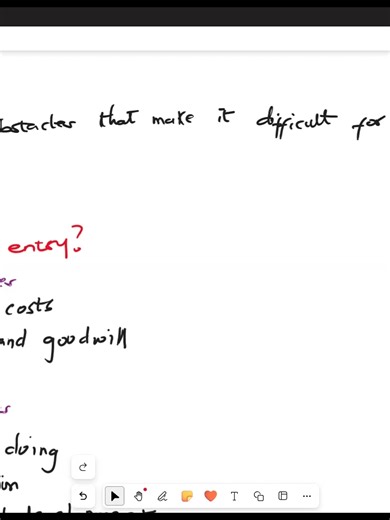 obstacles that make it difficult for
entry?
costs
and goodwill
doing